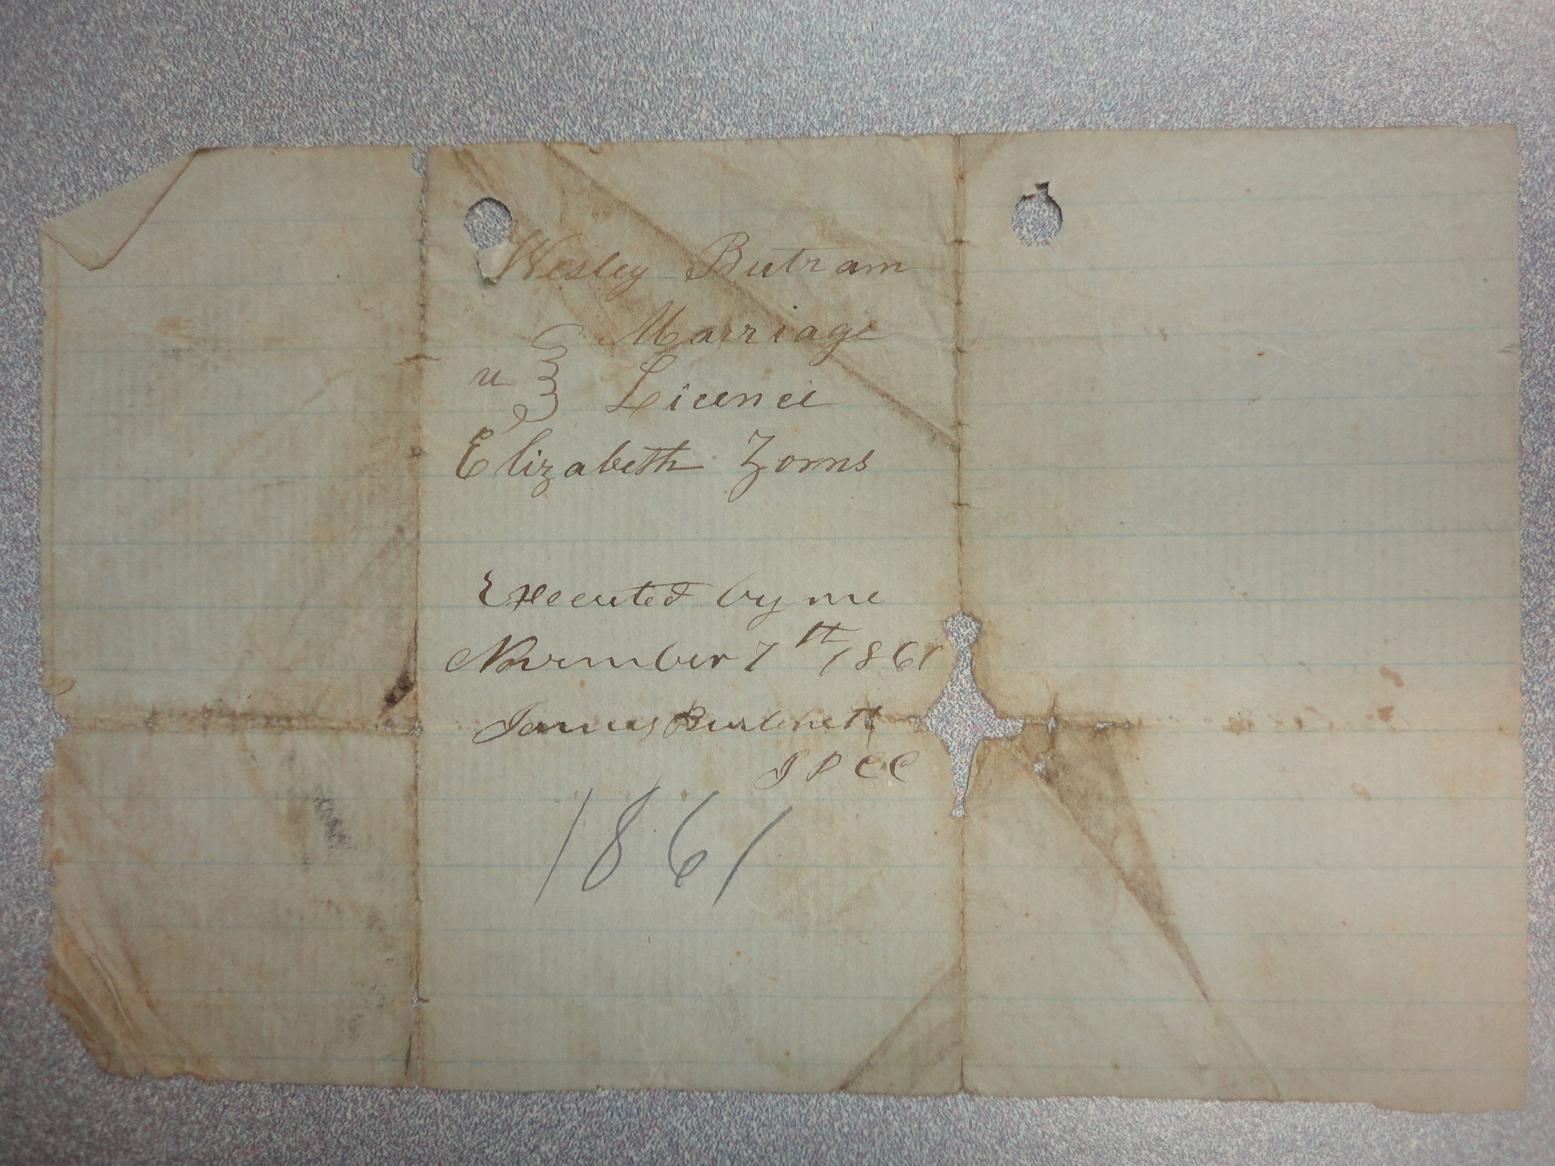 Wesley Butram
Marriage
Licence
Elizabeth Zorns
Executed by me
November 7th 1861
James
J P CC
1861